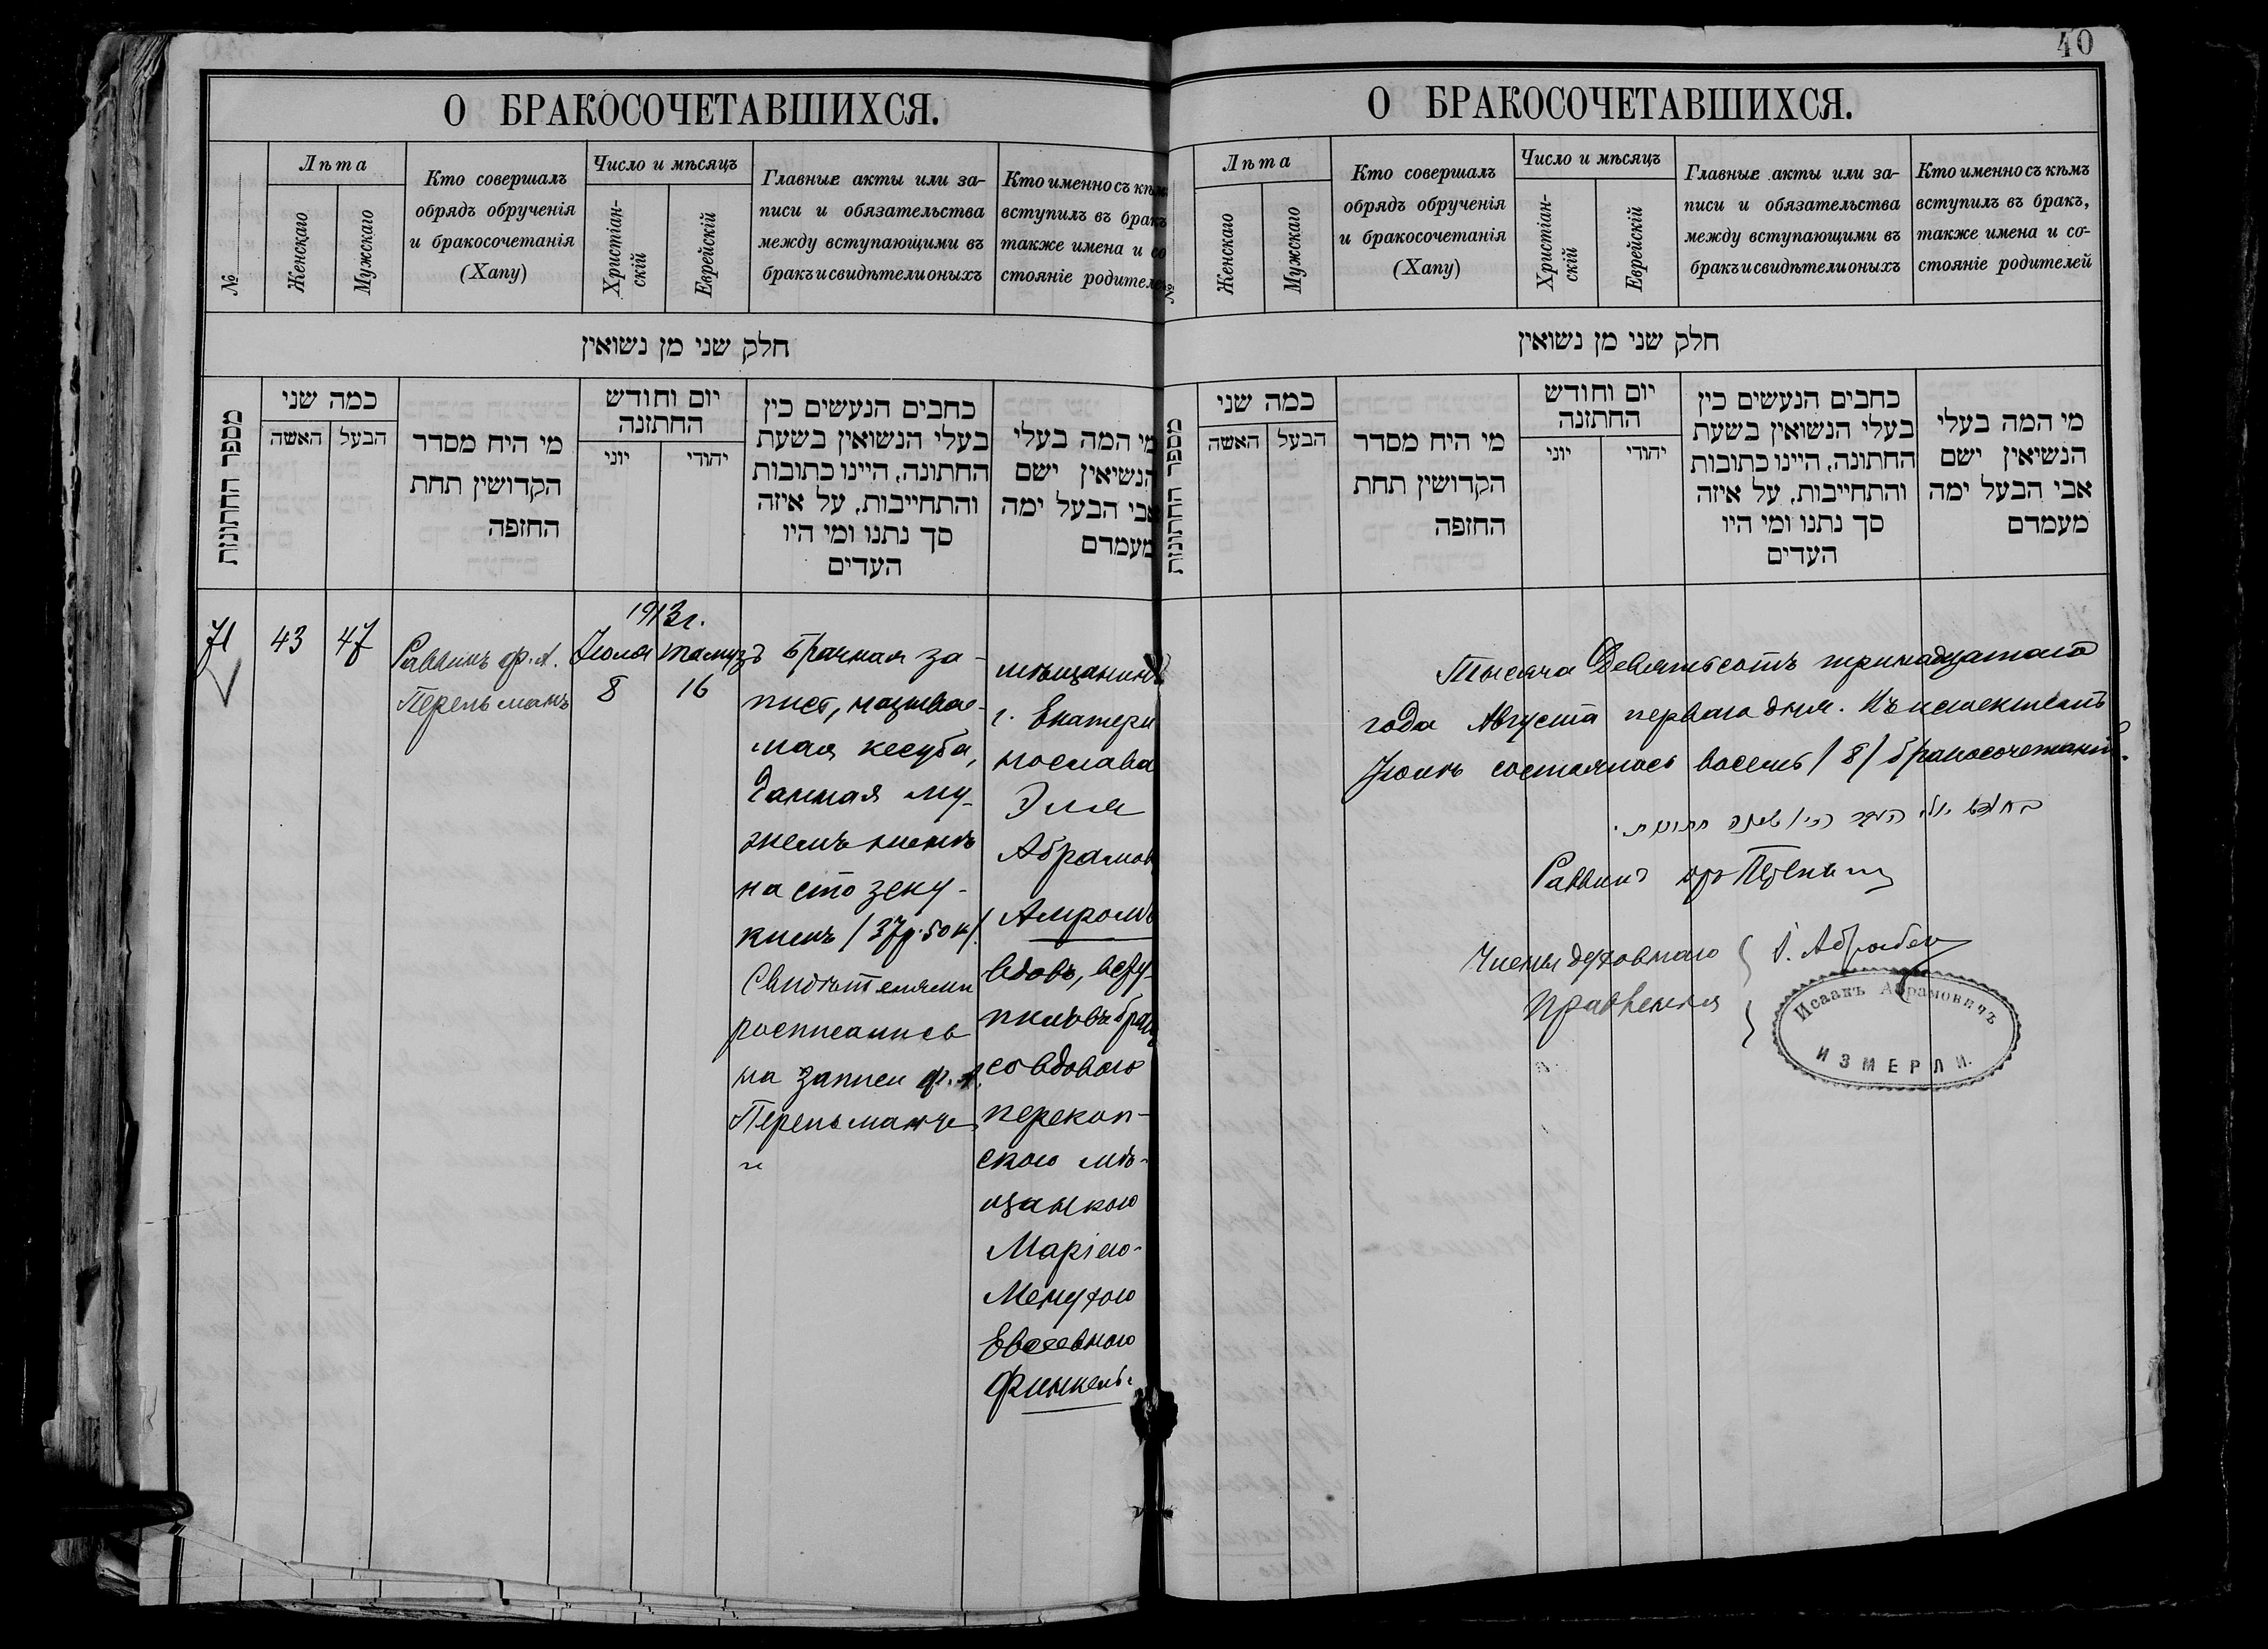 О БРАКОСОЧЕТАВШИХСЯ.
№
Лѣта
Женскаго
Мужскаго
Кто совершалъ
обрядъ обрученія
и бракосочетанія
(Хапу)
Число и мѣсяцъ
Христіан-
скій
Еврейскій
Главные акты или за-
писи и обязательства
между вступающими въ
бракъ и свидѣтели оныхъ
Кто именно съ кѣмъ
вступилъ въ бракъ
также имена и со
стояніе родителе
חלק שני מן נשואין
מספר החתונות
כמה שני
האשה
הבעל
מי היח מסדר
הקדושין תחת
החזפה
יום וחודש
החתזנה
יוני
יהודי
כחבים הנעשים כין
בעלי הנשואין בשעת
החתונה, היינו כתובות
והתחייבות, על איזה
סך נתנו ומי היו
העדים
מי המה בעלי
הנשיאין ישם
אבי הבעל ימה
מעמדם
71
43
47
Раввинъ Ф. А.
Перельманъ
1913 г.
Іюля
8
тамузъ
16
Брачная за-
пись, называе-
мая кесуба,
данная му-
жемъ женѣ
на сто зеку-
кимъ /37р. 50к/.
Свидѣтелями
росписались
на записи Ф. А.
Перельманъ
и
мѣщанинъ
г. Екатери
нослава
Эля
Абрамов
Амромъ
вдовъ, всту-
пилъ въ бракъ
со вдовою
перекоп-
скою мѣ-
щанкою
Маріею-
Менухою
Евсеевною
Финкель.
40
О БРАКОСОЧЕТАВШИХСЯ.
№
Лѣта
Женскаго
Мужскаго
Кто совершалъ
обрядъ обрученія
и бракосочетанія
(Хапу)
Число и мѣсяцъ
Христіан-
скій
Еврейскій
Главные акты или за-
писи и обязательства
между вступающими въ
бракъ и свидѣтели оныхъ
Кто именно съ кѣмъ
вступилъ въ бракъ,
также имена и со-
стояніе родителей
חלק שני מן נשואין
מספר החתונות
כמה שני
האשה
הבעל
מי היח מסדר
הקדושין תחת
החזפה
יום וחודש
החתזנה
יוני
יהודי
כחבים הנעשים כין
בעלי הנשואין בשעת
החתונה, היינו כתובות
והתחייבות, על איזה
סך נתנו ומי היו
העדים
מי המה בעלי
הנשיאין ישם
אבי הבעל ימה
מעמדם
Тысяча Девятьсотъ тринадцатаго
года Августа перваго дня. Въ истекшемъ
Іюлѣ состоялось восемь /8/ бракосочетаній.
שמנה חתונות.
Раввинъ
Члены духовнаго
правленія
Исаакъ Абрамовичъ
ИЗМЕРЛИ.